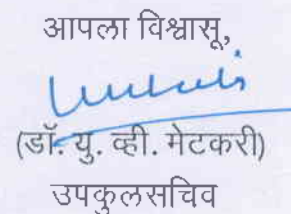 आपला विश्वासू,
(डॉ. यु. व्ही. मेटकरी)
उपकुलसचिव